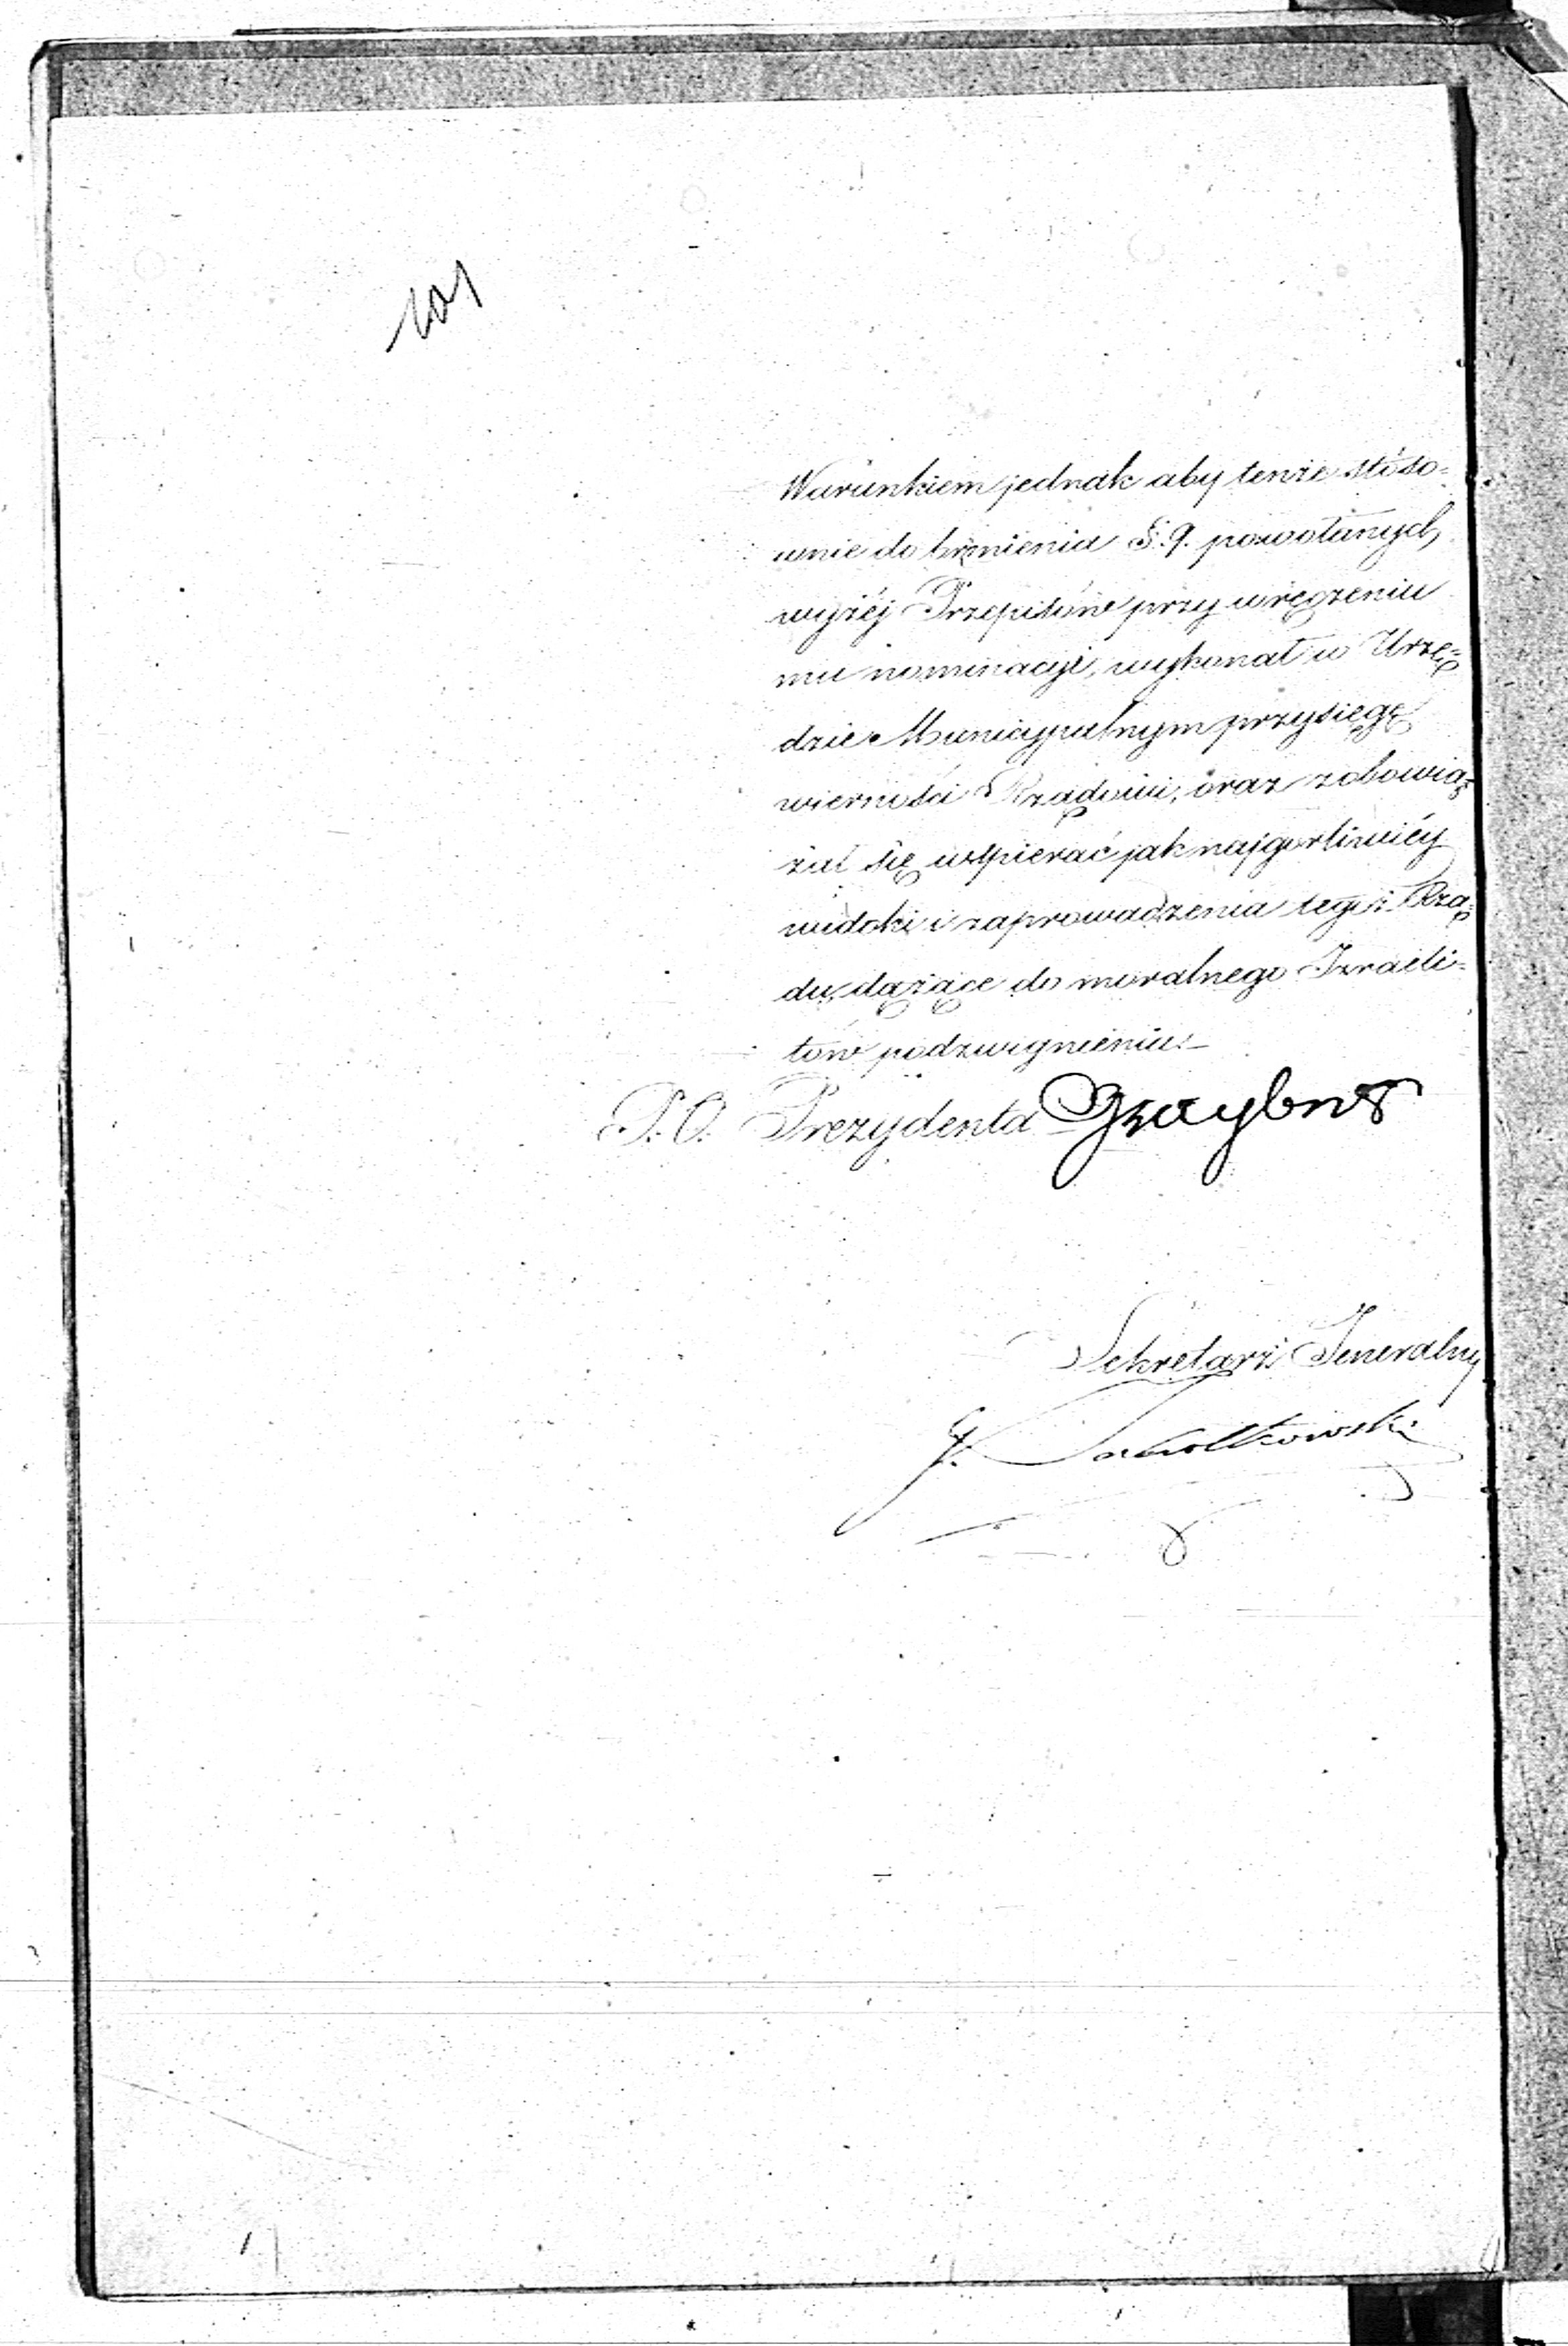 101
Warunkiem jednak aby tenże stóso=
wnie do brzmienia §. 9. powołanych
wyżéj Przepisów przy wręczeniu
mu nominacyi, wykonał w Urzę=
dzie Municypalnym przysięgę
wierności Rządowi, oraz zobowią=
zał się wspierać jak najgorliwiéy
widoki i zaprowadzenia tegoż Rzą=
du, dążące do moralnego Izraeli=
tów podzwignieniu.–
P. O. Prezydenta Graybner
Sekretarz Jeneralny